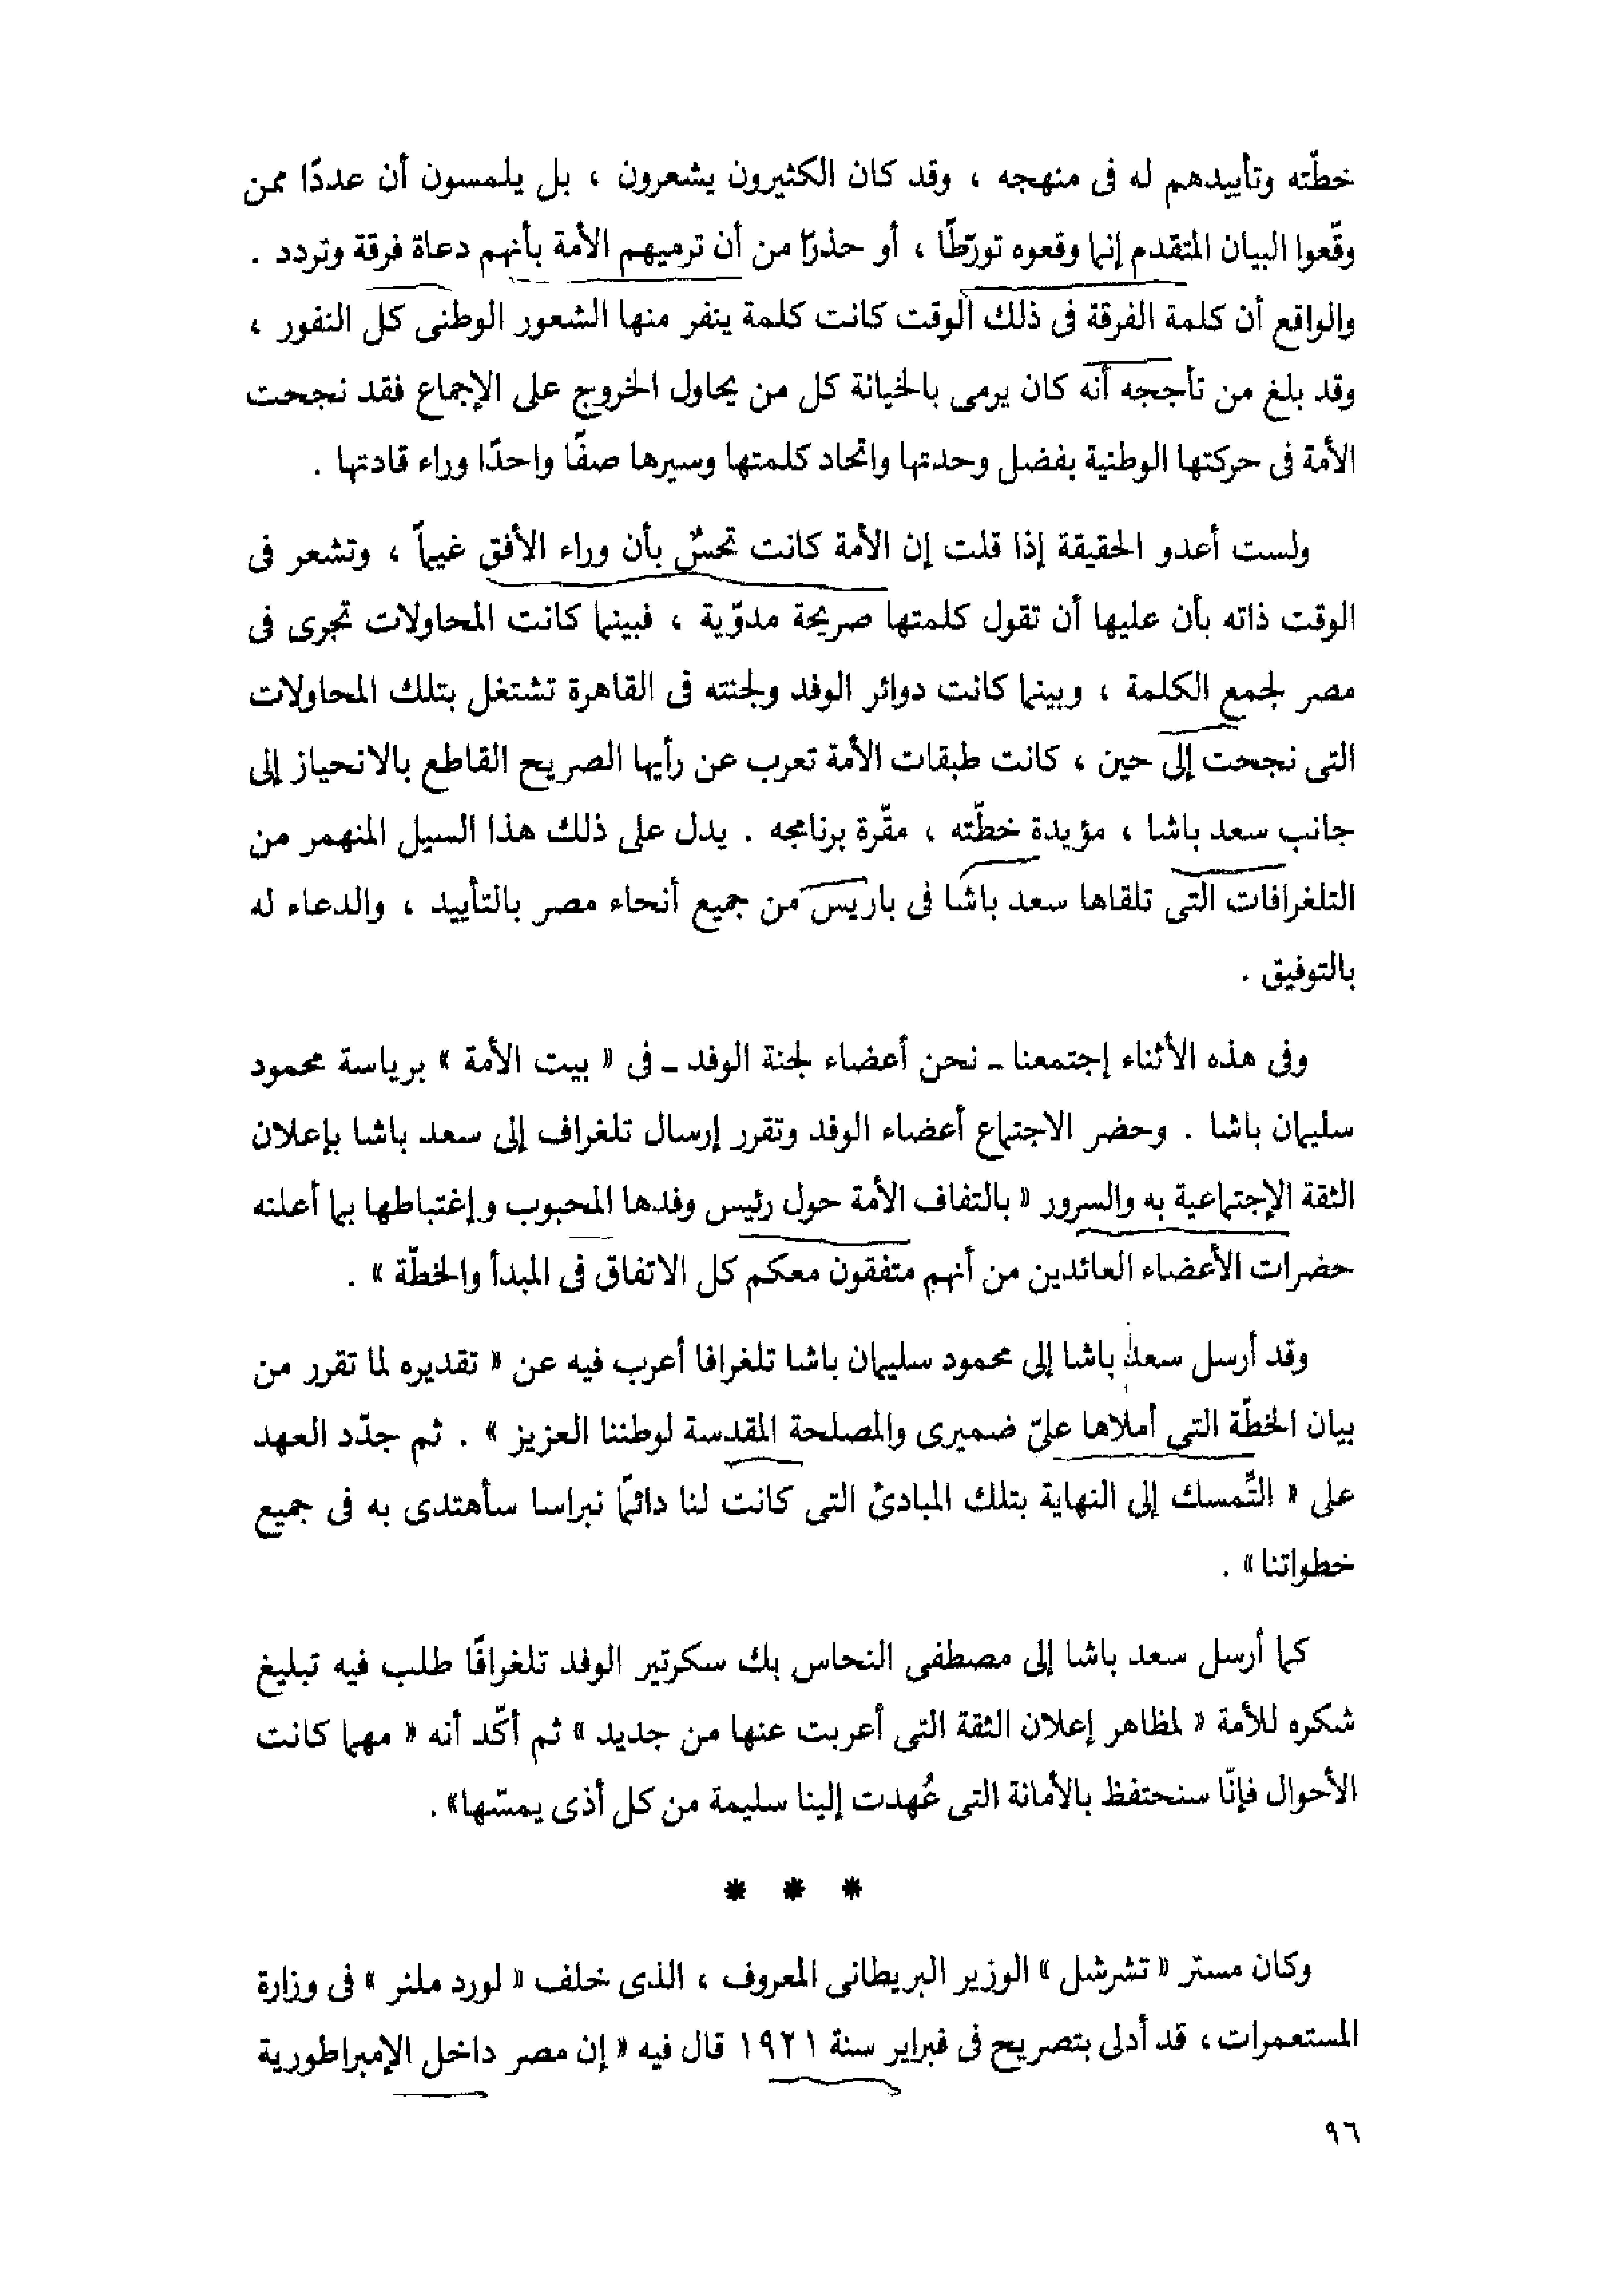 خطّته وتأييدهم له فى منهجه ، وقد كان الكثيرون يشعرون ، بل يلمسون أن عددًا ممن
وقّعوا البيان المتقدم إنما وقعوه تورّطًا ، أو حذرًا من أن ترميهم الأمة بأنهم دعاة فرقة وتردد .
والواقع أن كلمة الفرقة فى ذلك الوقت كانت كلمة ينفر منها الشعور الوطنى كل النفور ،
وقد بلغ من تأججه أنه كان يرمى بالخيانة كل من يحاول الخروج على الإجماع فقد نجحت
الأمة فى حركتها الوطنية بفضل وحدتها واتحاد كلمتها وسيرها صفًا واحدًا وراء قادتها .
ولست أعدو الحقيقة إذا قلت إن الأمة كانت تحسّ بأن وراء الأفق غيماً ، وتشعر فى
الوقت ذاته بأن عليها أن تقول كلمتها صريحة مدوّية ، فبينما كانت المحاولات تجرى فى
مصر لجمع الكلمة ، وبينما كانت دوائر الوفد ولجنته فى القاهرة تشتغل بتلك المحاولات
التى نجحت إلى حين ، كانت طبقات الأمة تعرب عن رأيها الصريح القاطع بالانحياز إلى
جانب سعد باشا ، مؤيدة خطّته ، مقّرة برنامجه . يدل على ذلك هذا السيل المنهمر من
التلغرافات التى تلقاها سعد باشا فى باريس من جميع أنحاء مصر بالتأييد ، والدعاء له
بالتوفيق .
وفى هذه الأثناء إجتمعنا ـ نحن أعضاء لجنة الوفد ـ فى « بيت الأمة » برياسة محمود
سليمان باشا . وحضر الاجتماع أعضاء الوفد وتقرر إرسال تلغراف إلى سعد باشا بإعلان
الثقة الإجتماعية به والسرور « بالتفاف الأمة حول رئيس وفدها المحبوب وإغتباطها بما أعلنه
حضرات الأعضاء العائدين من أنهم متفقون معكم كل الاتفاق فى المبدأ والخطّة » .
وقد أرسل سعد باشا إلى محمود سليمان باشا تلغرافا أعرب فيه عن « تقديره لما تقرر من
بيان الخطّة التى أملاها علىّ ضميرى والمصلحة المقدسة لوطننا العزيز » . ثم جدّد العهد
على « التّمسك إلى النهاية بتلك المبادئ التى كانت لنا دائمًا نبراسا سأهتدى به فى جميع
خطواتنا » .
كما أرسل سعد باشا إلى مصطفى النحاس بك سكرتير الوفد تلغرافًا طلب فيه تبليغ
شكره للأمة « لمظاهر إعلان الثقة التى أعربت عنها من جديد » ثم أكّد أنه « مهما كانت
الأحوال فإنّا سنحتفظ بالأمانة التى عُهدت إلينا سليمة من كل أذى يمسّها» .
* * *
وكان مستر « تشرشل » الوزير البريطانى المعروف ، الذى خلف « لورد ملنر » فى وزارة
المستعمرات ، قد أدلى بتصريح فى فبراير سنة ١٩٢١ قال فيه « إن مصر داخل الإمبراطورية
٩٦